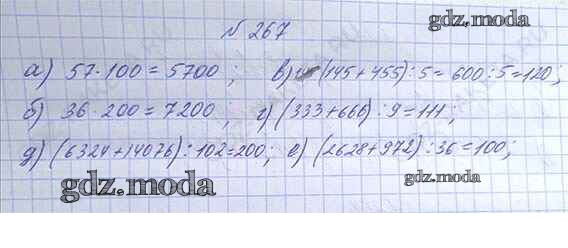 gdz.moda
N 267
а) 57·100=5700; в) (145+455):5=600:5=120;
б) 36·200=7200; г) (333+666):9=111;
д) (6324+14076):102=200; е) (2628+972):36=100;
gdz.moda gdz.moda
gdz.moda